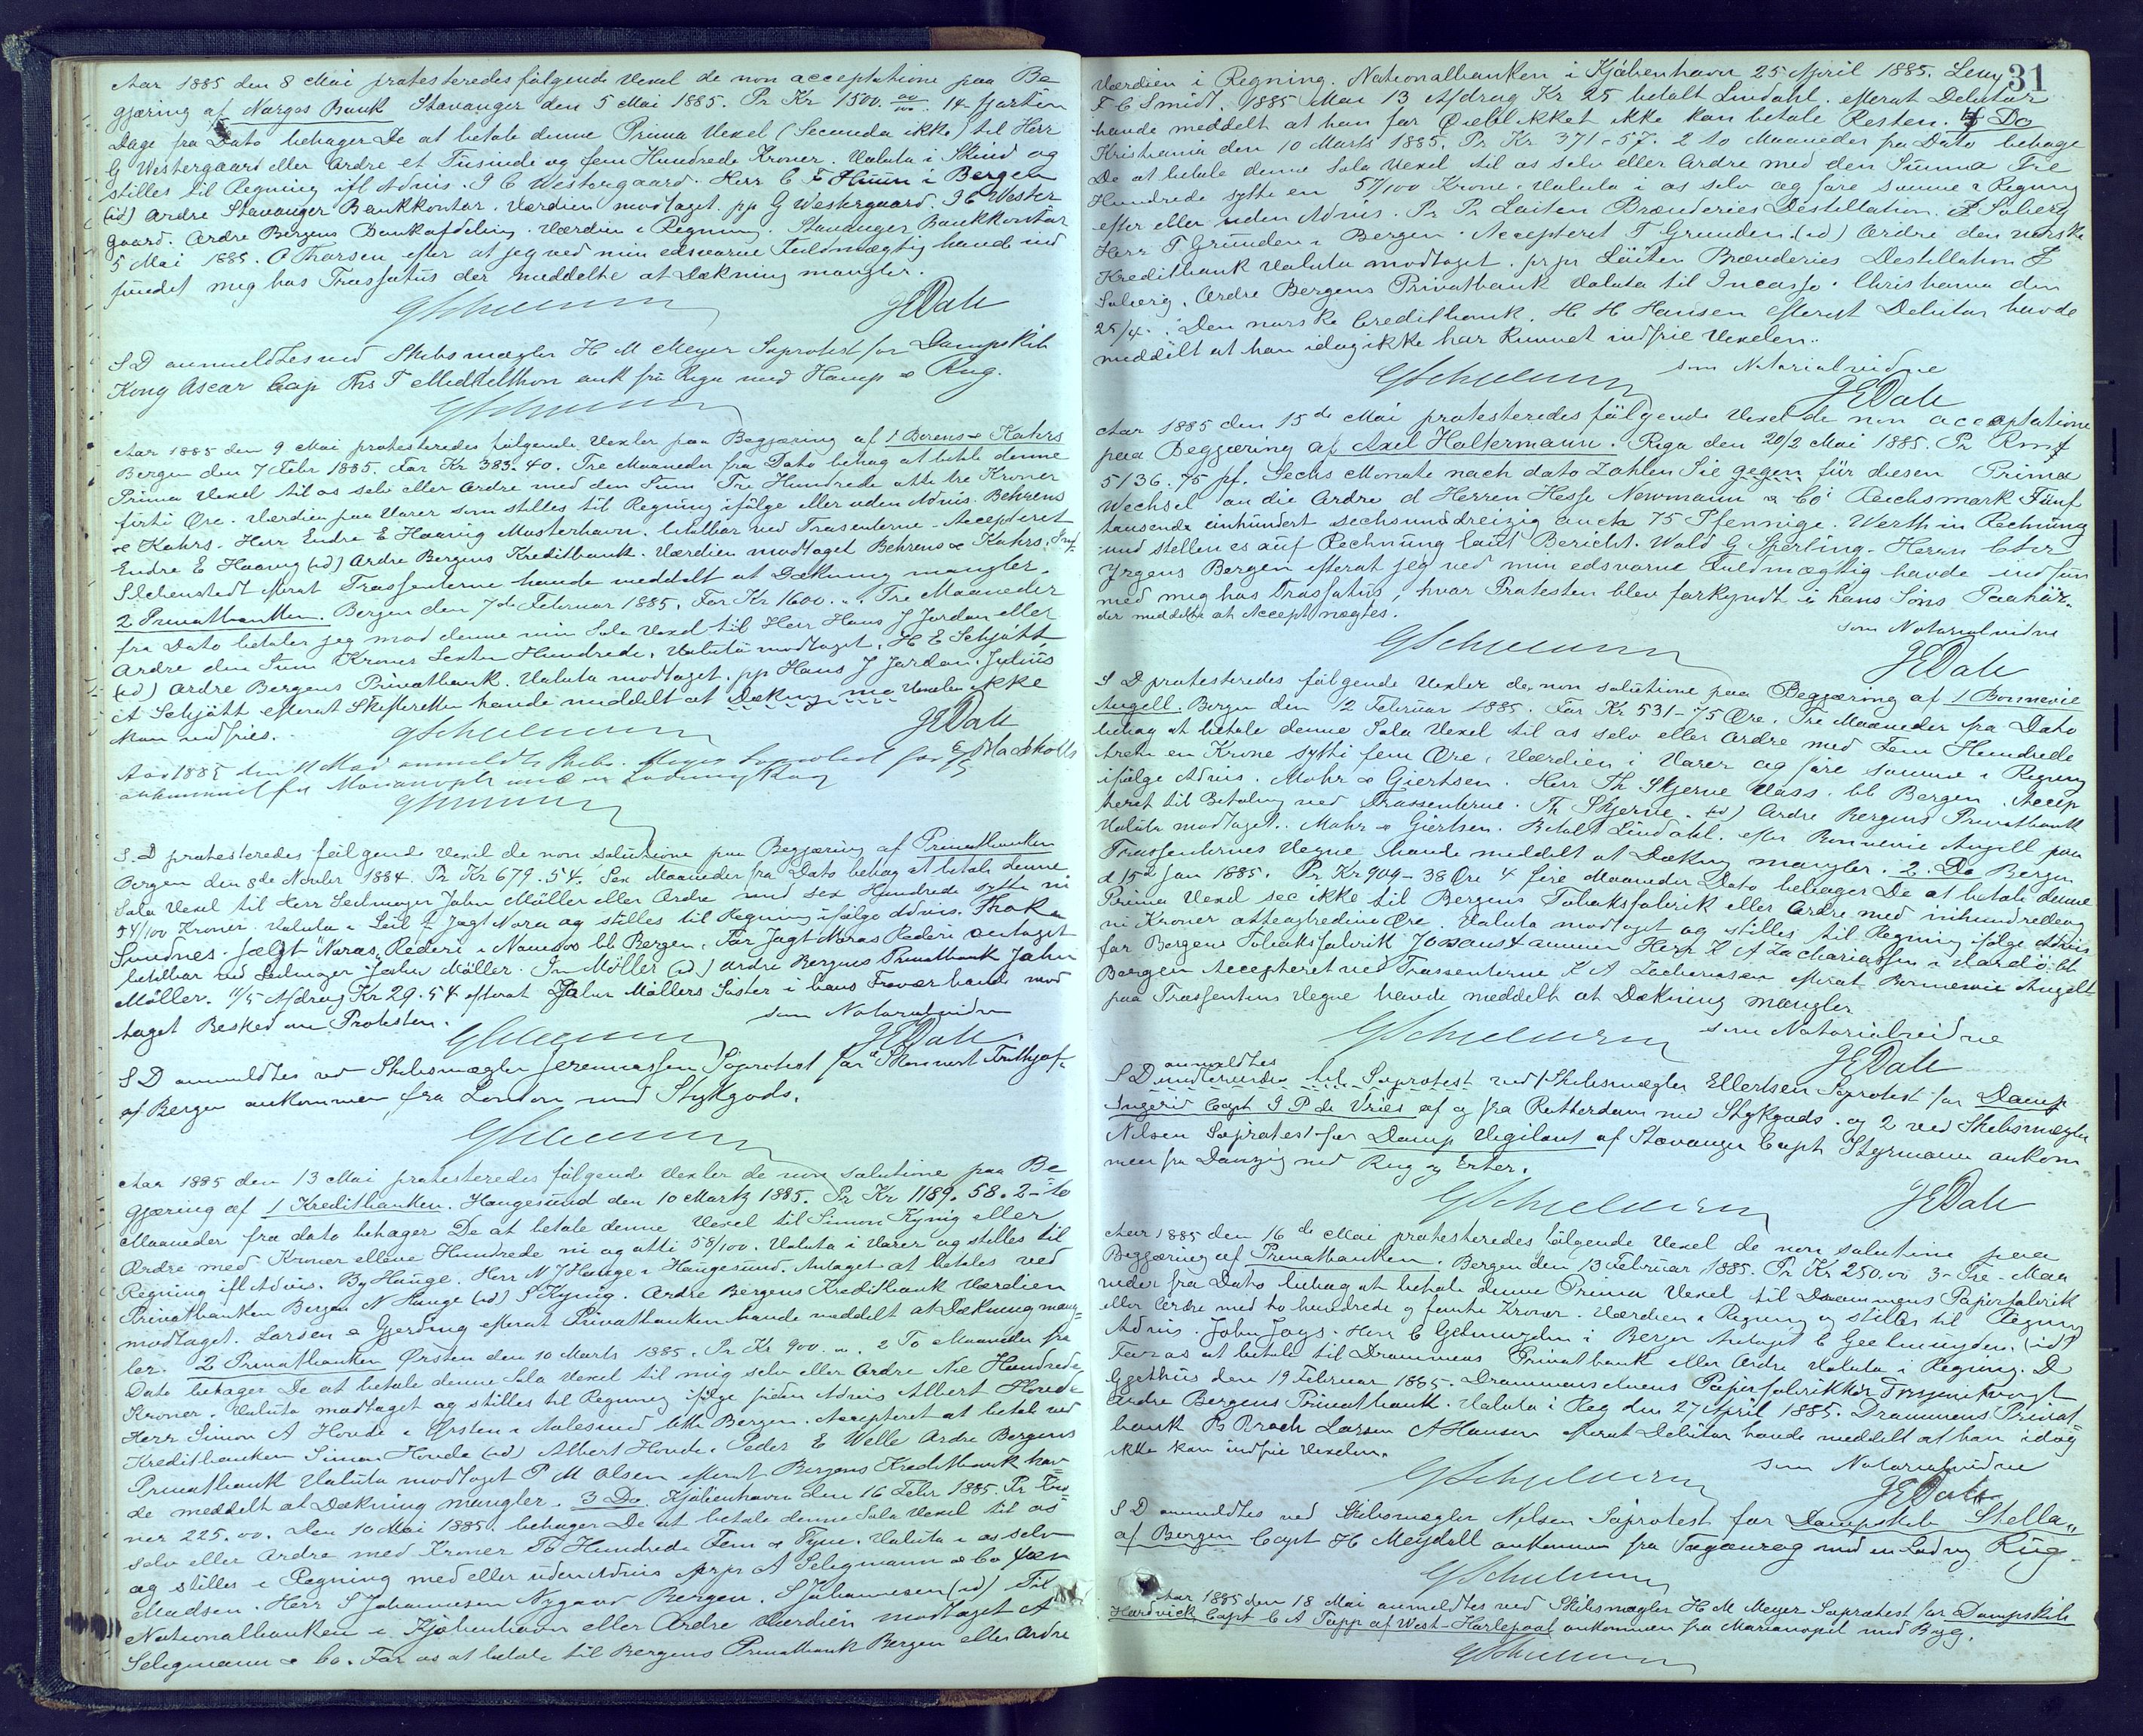 Aar 1885 den 8 Mai protesteredes følgende Vexel de non acceptatione paa Be
gjæring af Norges Bank Stavanger den 5 Mai 1885. Pr Kr 1500. 00/00. 14 fjorten
Dage fra Dato behager De at betale denne Prima Vexel (Secunda ikke) til Herr
G Westergaard eller Ordre et Tusinde og fem Hundrede Kroner. Valuta i Skind og
stilles til Regning ifl Advis. I C Westergaard. Herr C F Huun i Bergen
(id) Ordre Stavanger Bankkontor. Værdien modtaget pp G Westergaard. I C Wester
gaard. Ordre Bergens Bankafdeling. Værdien i Regning. Stavanger Bankkontor
5 Mai 1885. O Thorsen efter at jeg ved min edsvorne Fuldmægtig havde ind
fundet mig hos Trassatus der meddelte at Dækning mangler.
JEDahl
S D anmeldtes ved Skibsmægler H M Meyer Søprotest for Dampskib
Kong Oscar Cap Ths T Middelthon ank fra Riga med Hamp & Rug.
Aar 1885 den 9 Mai protesteredes følgende Vexler paa Begjæring af 1 Berens & Kahrs
Bergen den 7 Febr 1885. For Kr 383.40. Tre Maaneder fra Dato behag at betale denne
Prima Vexel til os selv eller Ordre med den Sum Tre Hundrede otti tre Kroner
firti Øre. Værdien paa Varer som stilles til Regning ifølge eller uden Advis. Behrens
& Kahrs. Herr Endre E Haavig Mosterhavn. betalbar ved Trasenterne. Accepteret
Endre E Haavig (id) Ordre Bergens Kreditbank. Værdien modtaget Behrens & Kahrs.
efterat Trassenterne havde meddelt at Dækning mangler.
2 Privatbanken. Bergen den 7de Februar 1885. For Kr 1600... Tre Maaneder
fra Dato betaler jeg mod denne min Sola Vexel til Herr Hans J Jordan eller
Ordre den Sum Kroner Sexten Hundrede. Valuta modtaget. H E Schjøtt
(id) Ordre Bergens Privatbank. Valuta modtaget. pp Hans J Jordan. Julius
A Schjøtt efterat Skifteretten havde meddelt at Dækning ma Vexelen ikke
kan indfries.
JEDahl
Aar 1885 den 11 Mai anmeldte Skibs. Meyer Søprotest for
ankommet fra Marianopel med en Ladning Rug
S. D protesteredes følgende Vexel de non solutione paa Begjæring af Privatbanken
Bergen den 8de Novbr 1884. Pr Kr 679.54. Sex Maaneder fra Dato behag at betale denne
Sola Vexel til Herr Seilmager John Møller eller Ordre med sex Hundrede sytti ni
54/100 Kroner. Valuta i Seil t Jagt Nora og stilles til Regning ifølge Advis.
Sundnes. Jagt Noras Rederi i Namsos bb Bergen. For Jagt Noras Rederi antaget
betalbar ved Seilmager John Møller. Møller (id) Ordre Bergens Privatbank John
Møller. 11/5 Afdrag Kr 29.54 efterat John Møllers Søster i hans Fravær havde mod
taget Besked om Protesten.
som Notarialvidne
JEDahl
S D anmeldtes ved Skibsmægler Jeremiassen Søprotest for Skonnert Frithjof
af Bergen ankommen fra London med Stykgods.
Aar 1885 den 13 Mai protesteredes følgende Vexler de non solutione paa Be
gjæring af 1 Kreditbanken. Haugesund den 10 Marts 1885. Pr Kr 1189.58. 2 - to
Maaneder fra dato behager De at betale denne Vexel til Simon Kynig eller
Ordre med Kroner elleve Hundrede ni og otti 58/100. Valuta i Varer og stilles til
Regning ifl Advis. By Hauge. Herr N J Hauge i Haugesund. Antaget at betales ved
Privatbanken Bergen N Hauge (id) S Kynig. Ordre Bergens Kreditbank Værdien
modtaget. Larsen & Gjerding efterat Privatbanken havde meddelt at Dækning mang
ler. 2 Privatbanken Ørsten den 10 Marts 1885. Pr Kr 900... 2 To Maaneder fra
Dato behager De at betale denne Sola Vexel til mig selv eller Ordre Nie Hundrede
Kroner. Valuta modtaget og stilles til Regning ifølge Advis Albert Hovde
Herr Simon A Hovde i Ørsten i Aalesund bb Bergen. Accepteret at betale ved
Kreditbanken Simon Hovde (id) Albert Hovde. Peder E Welle Ordre Bergens
Privatbank Valuta modtaget P M Olsen efterat Bergens Kreditbank hav
de meddelt at Dækning mangler. 3 Do. Kjøbenhavn den 16 Febr 1885. Pr Kro
ner 225.00. Den 10 Mai 1885. behager De at betale denne Sola Vexel til os
selv eller Ordre med Kroner To Hundrede Fem & Tyve. Valuta i os selv
og stilles i Regning med eller uden Advis prpr A Seligmann & Co
Madsen. Herr S Johannesen Nygaard Bergen. S Johannesen (id) Til
Nationalbanken i Kjøbenhavn eller Ordre Værdien modtaget A
Seligmann & Co. For os at betale til Bergens Privatbank Bergen eller Ordre
31
Værdien i Regning. Nationalbanken i Kjøbenhavn 25 April 1885. Levy
F C Smidt. 1885 Mai 13 Afdrag Kr 25 betalt Lindahl. efterat Debitor
havde meddelt at han for Øieblikket ikke kan betale Resten. 4 Do
Kristiania den 10 Marts 1885. Pr Kr 371-57. 2 to Maaneder fra Dato behage
De at betale denne Sola Vexel til os selv eller Ordre med den Summa Tre
Hundrede sytti en 57/100 Krone. Valuta i os selv og føre samme i Regning
efter eller uden Advis. Pr Pr Løiten Brænderies Destillation. J Soberg
Herr T Grunden i Bergen. Accepteret T Grunden. (id) Ordre den norske
Kreditbank Valuta modtaget. prpr Løiten Brænderies Destillation J
Soberg. Ordre Bergens Privatbank Valuta til Incasso. Christiania den
25/4. Den norske Creditbank. H H Hansen efterat Debitor havde
meddelt at han idag ikke har kunnet indfrie Vexelen.
som Notarialvidne
JEDahl
Aar 1885 den 15de Mai protesteredes følgende Vexel de non acceptatione
paa Begjæring af Axel Holtermann. Riga den 20/2 Mai 1885. Pr Rm
5136.75 pf. Sechs Monate nach dato Zahlen Sie gegen für diesen Prima
Wechsel an die Ordre d Herren Hesse Newmann & Co Reichsmark Fünf
tausende einhundert sechsunddreizig auch 75 Pfennige. Werth in Rechnung
und stellen es auf Rechnung laut Bericht. Wold G Sperling. Herrn Chr
Yrgens Bergen efterat jeg ved min edsvorne Fuldmægtig havde indfun
ned mig hos Trassatus, hvor Protesten blev forkyndt i hans Søns Paahør.
der meddelte at Accept nægtes.
som Notarialvidne
JEDahl
S D protesteredes følgende Vexler de non solutione paa Begjæring af 1 Bonnevie
Angell. Bergen den 12 Februar 1885. For Kr 531-75 Øre. Tre Maaneder fra Dato
behag at betale denne Sola Vexel til os selv eller Ordre med Fem Hundrede
treti en Krone sytti fem Øre. Værdien i Varer og føre samme i Regning
ifølge Advis. Mohr & Giertsen. Herr Th Skjerve Voss. bb Bergen. Accep
teret til Betaling ved Trassenterne. Th Skjerve. (id) Ordre Bergens Privatbank
Valuta modtaget. Mohr & Giertsen. Betalt Lindahl. efter Bonnevie Angell paa
Trassenternes Vegne havde meddelt at Dækning mangler. 2. Do Bergen
d 15de Jan 1885. Pr Kr 909-38 Øre 4 fire Maaneder Dato behager De at betale denne
Prima Vexel sec ikke til Bergens Tobaksfabrik eller Ordre med nihundredeog
ni Kroner otteogtredive Øre. Valuta modtaget og stilles til Regning ifølge Advis
for Bergens Tobaksfabrik Herr K A Zachariassen i Vardø. bb
Bergen Accepteret ved Trassenterne K A Zachariasen efterat Bonnevie Angell
paa Trassentens Vegne havde meddelt at Dækning mangler
som Notarialvidne
JEDahl
anmeldtes
S D til Søprotest ved 1 Skibsmægler Ellertsen Søprotest for Damp
Ingerid Capt I P de Vries af og fra Rotterdam med Stykgods. og 2 ved Skibsmægler
Nilsen Søprotest for Damp Vigilant af Stavanger Capt Styrmann ankom
men fra Danzig med Rug og Erter.
JEDahl
Aar 1885 den 16de Mai protesteredes følgende Vexel de non solutione paa
Begjæring af Privatbanken. Bergen den 13 Februar 1885. Pr Kr 250.00 3-Tre-Maa
neder fra Dato behag at betale denne Prima Vexel til Drammens Papirfabrik
eller Ordre med to hundrede og femti Kroner. Værdien i Regning og stilles til Regning
Advis. John Joys. Herr C Gelmuyden i Bergen Antaget C Geelmuyden. (id)
For os at betale til Drammens Privatbank eller Ordre Valuta i Regning. D
Gjethus den 19 Februar 1885. Drammenselvens Papirfabrikker
Ordre Bergens Privatbank. Valuta i Reg den 27 April 1885. Drammens Privat
bank B Broch Larsen A Hansen efterat Debitor havde meddelt at han idag
ikke kan indfrie Vexelen.
som Notarialvidne
JEDahl
S D anmeldtes ved Skibsmægler Nilsen Søprotest for Dampskib "Stella"
af Bergen Capt H Meydell ankommen fra Taganrog med en Ladng Rug.
Aar 1885 den 18 Mai anmeldtes ved Skibsmægler H M Meyer Søprotest for Dampskib
Hardwick Capt C A Tapp af West-Hartlepool ankommen fra Marianopel med Byg.